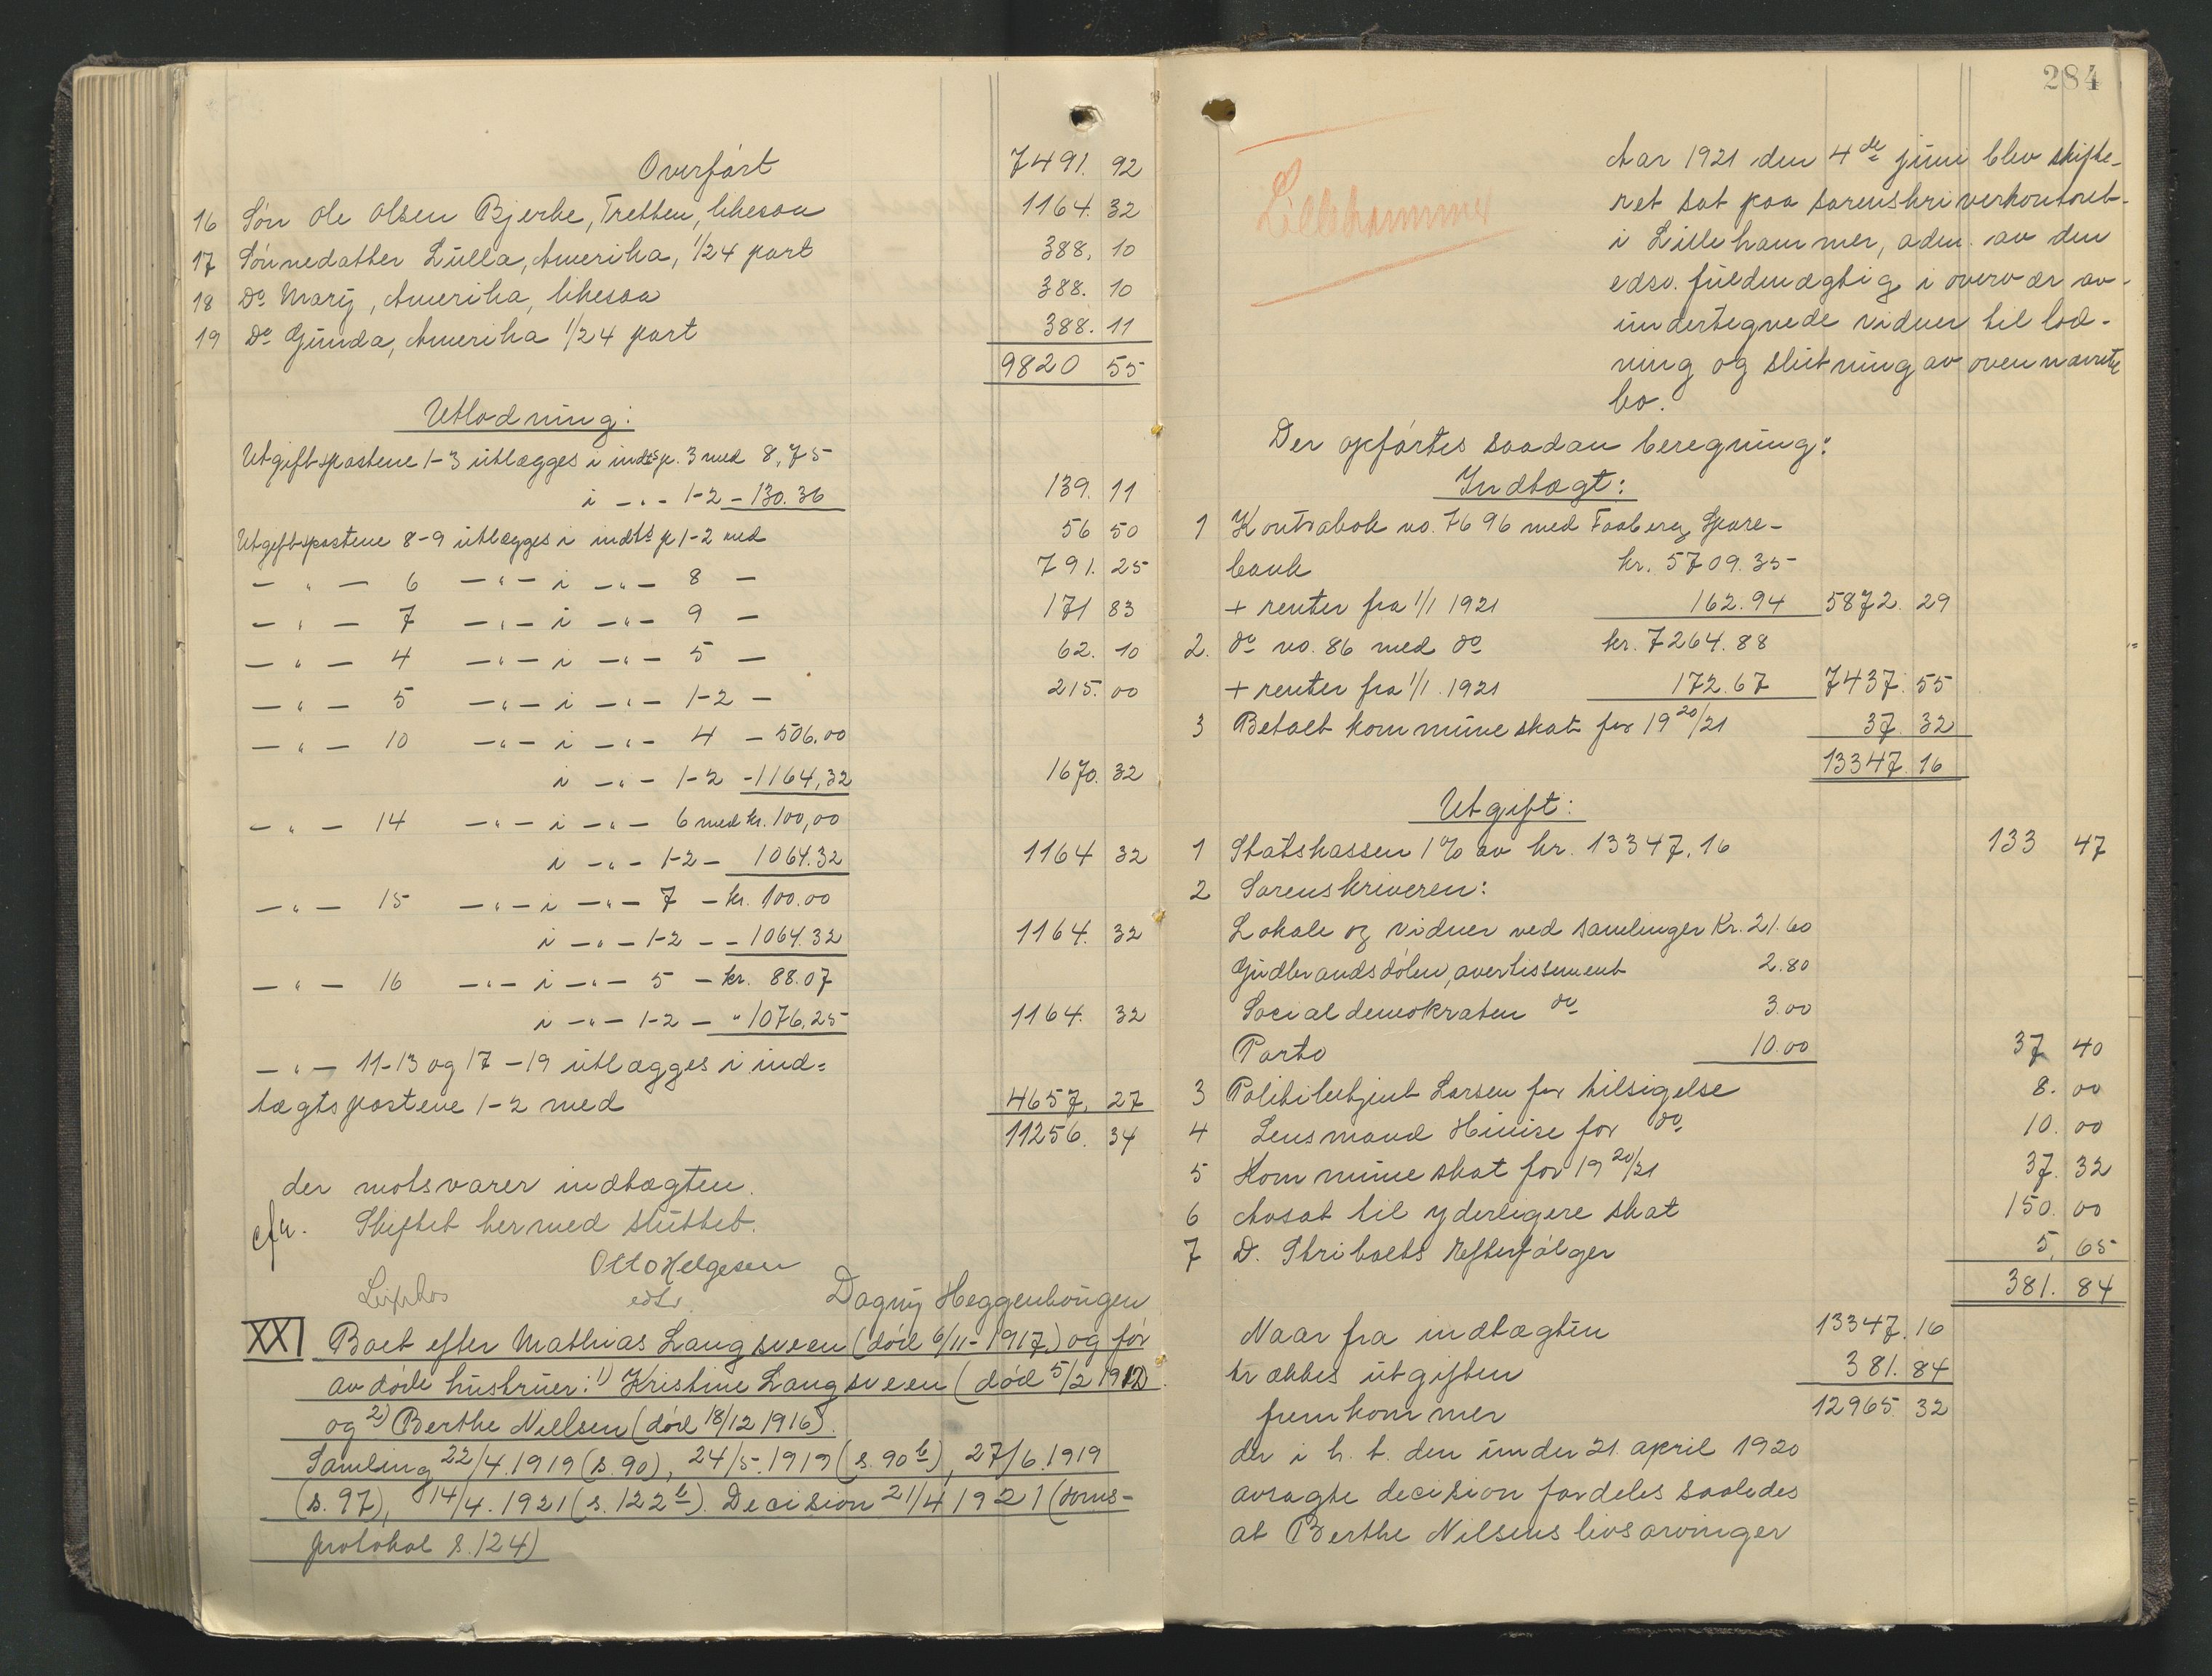 Overført 7491. 92
16 Søn Ole Olsen Bjerke, Tretten, likesaa 1164. 32
17 Sønnedatter Lulla, Amerika, 1/24 part 388. 10
18 Do Mary, Amerika, likesaa 388. 10
19 Do Gunda, Amerika 1/24 part 388. 11
9820 55
Utlodning:
Utgiftspostene 1-3 utlægges i indts p. 3 med 8,75
i -"- 1-2 - 130.36 139. 11
Utgiftspostene 8-9 utlægges i indts p 1-2 med 56 50
- " - 6 -"- i -"- 8 - 791. 25
- " - 7 -"- i -"- 9 - 171 83
- " - 4 -"- i -"- 5 - 62. 10
- " - 5 -"- i -"- 1-2 - 215. 00
- " - 10 -"- i -"- 4 - 506.00
i -"- 1-2 - 1164,32 1670. 32
- " - 14 -"- i -"- 6 med kr. 100,00
i -"- 1-2 - 1064.32 1164 32
- " - 15 -"- i -"- 7 - kr. 100.00
i -"- 1-2 - - 1064.32 1164. 32
- " - 16 -"- i -"- 5 - kr. 88.07
i -"- 1-2 - " 1076,25 1164. 32
- " - 11-13 og 17-19 utlægges i ind=
tægtspostene 1-2 med 4657. 27
11256. 34
der motsvarer indtægten.
cfr. Skiftet hermed sluttet.
Otto Helgesen
edsv. Dagny Heggenhougen
XXI Boet efter Mathias Langsveen (død 6/11-1917) og før
avdøde hustruer: 1) Kristine Langsveen (død 5/2 1912)
og 2) Berthe Nielsen (død 18/12 1916).
Samling 22/4.1919 (s. 90), 24/5.1919 (s. 90 b), 27/6.1919
(s. 97), 14/4.1921 (s. 122 b). Decision 21/4 1921 (doms-
protokol s. 124)
284
Lillehammer
Aar 1921 den 4de juni blev skifte-
ret sat paa sorenskriverkontoret
i Lillehammer, adm. av den
edsv. fuldmægtig i overvær av
undertegnede vidner til lod-
ning og slutning av ovennævnte
bo.
Der opførtes saadan beregning:
Indtægt:
1 Kontrabok no. 7696 med Faaberg Spare-
bank kr. 5709.35
+ renter fra 1/1 1921 162.94 5872. 29
2. do no. 86 med do kr. 7264.88
+ renter fra 1/1. 1921 172.67 7437. 55
3 Betalt kommuneskat for 1920/21 37. 32
13347. 16
Utgift:
1 Statskassen 1% av kr. 13347.16 133 47
2 Sorenskriveren:
Lokale og vidner ved samlinger kr. 21.60
Gudbrandsdølen, avertissement 2.80
Socialdemokraten do 3.00
Porto 10.00 37 40
3 Politibetjent Larsen for tilsigelse 8. 00
4 Lensmand for do. 10. 00
5 Kommuneskat for 1920/21 37. 32
6 Avsat til yderligere skat 150. 00
7 D. Stribolts Efterfølger 5. 65
381. 84
Naar fra indtægten 13347. 16
trækkes utgiften 381. 84
fremkommer 12965. 32
der i h. t. den under 21. april 1920
avsagte decision fordeles saaledes
at Berthe Nilsens livsarvinger